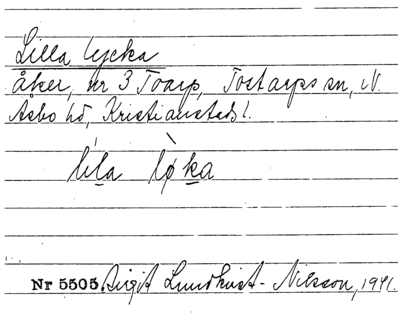 Lilla lycka
åker, nr 3 Toarp, Tostarps sn, N.
Åsbo hd, Kristianstads l.
lìla lø̀ka
Nr 5505. Birgit Lundkvist-Nilsson, 1941.